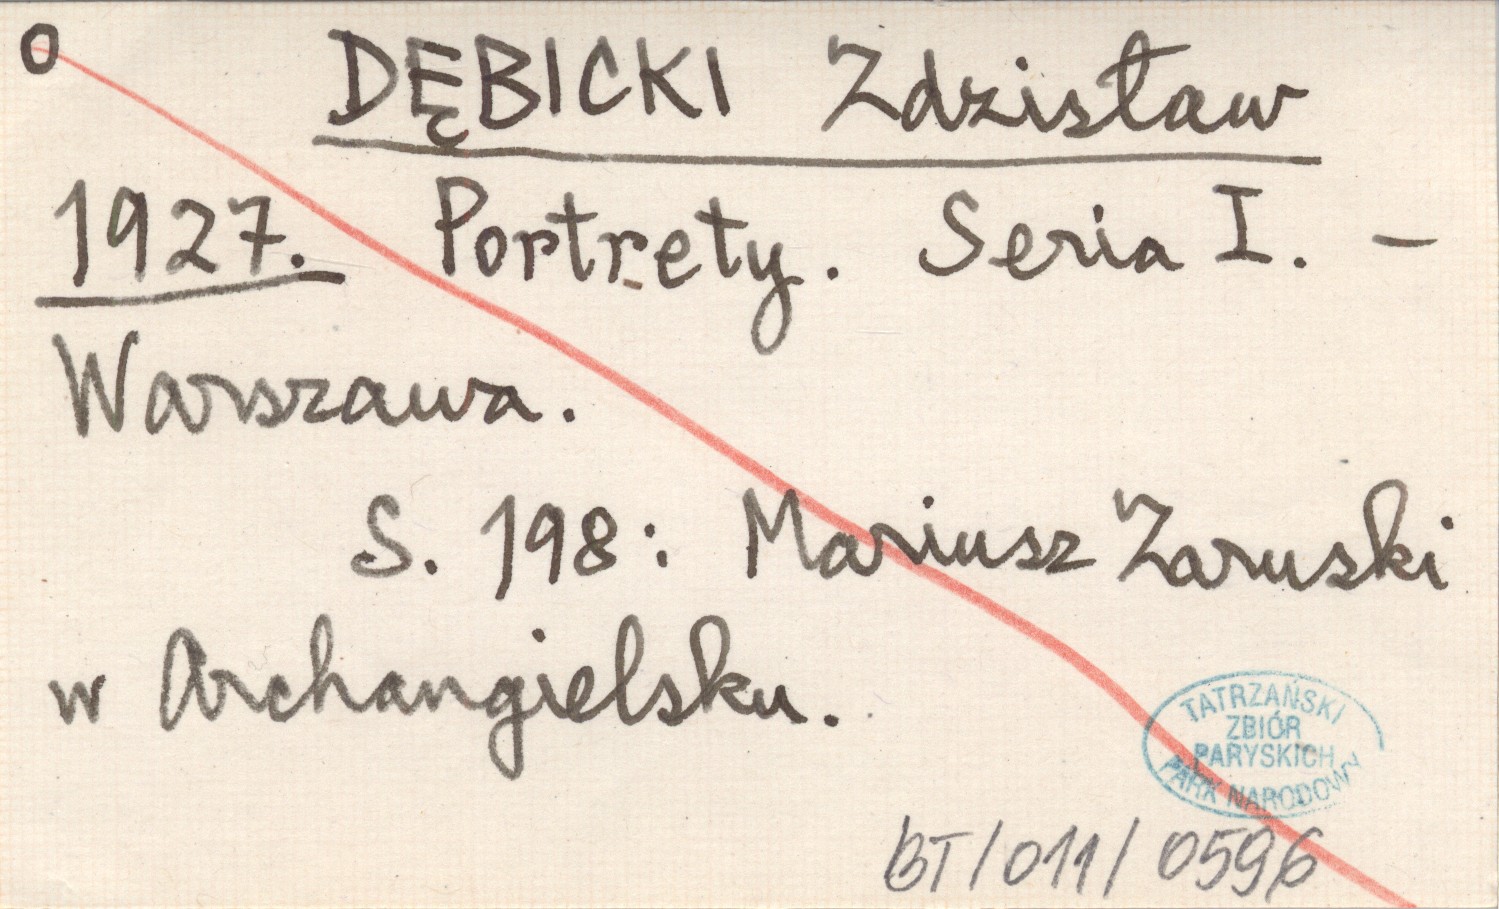 O
DĘBICKI Zdzisław
1927. Portrety. Seria I. –
Warszawa.
S. 198: Mariusz Zaruski
w Archangielsku.
TATRZAŃSKI
ZBIÓR
PARYSKICH
PARK NARODOWY
BT/011/0596